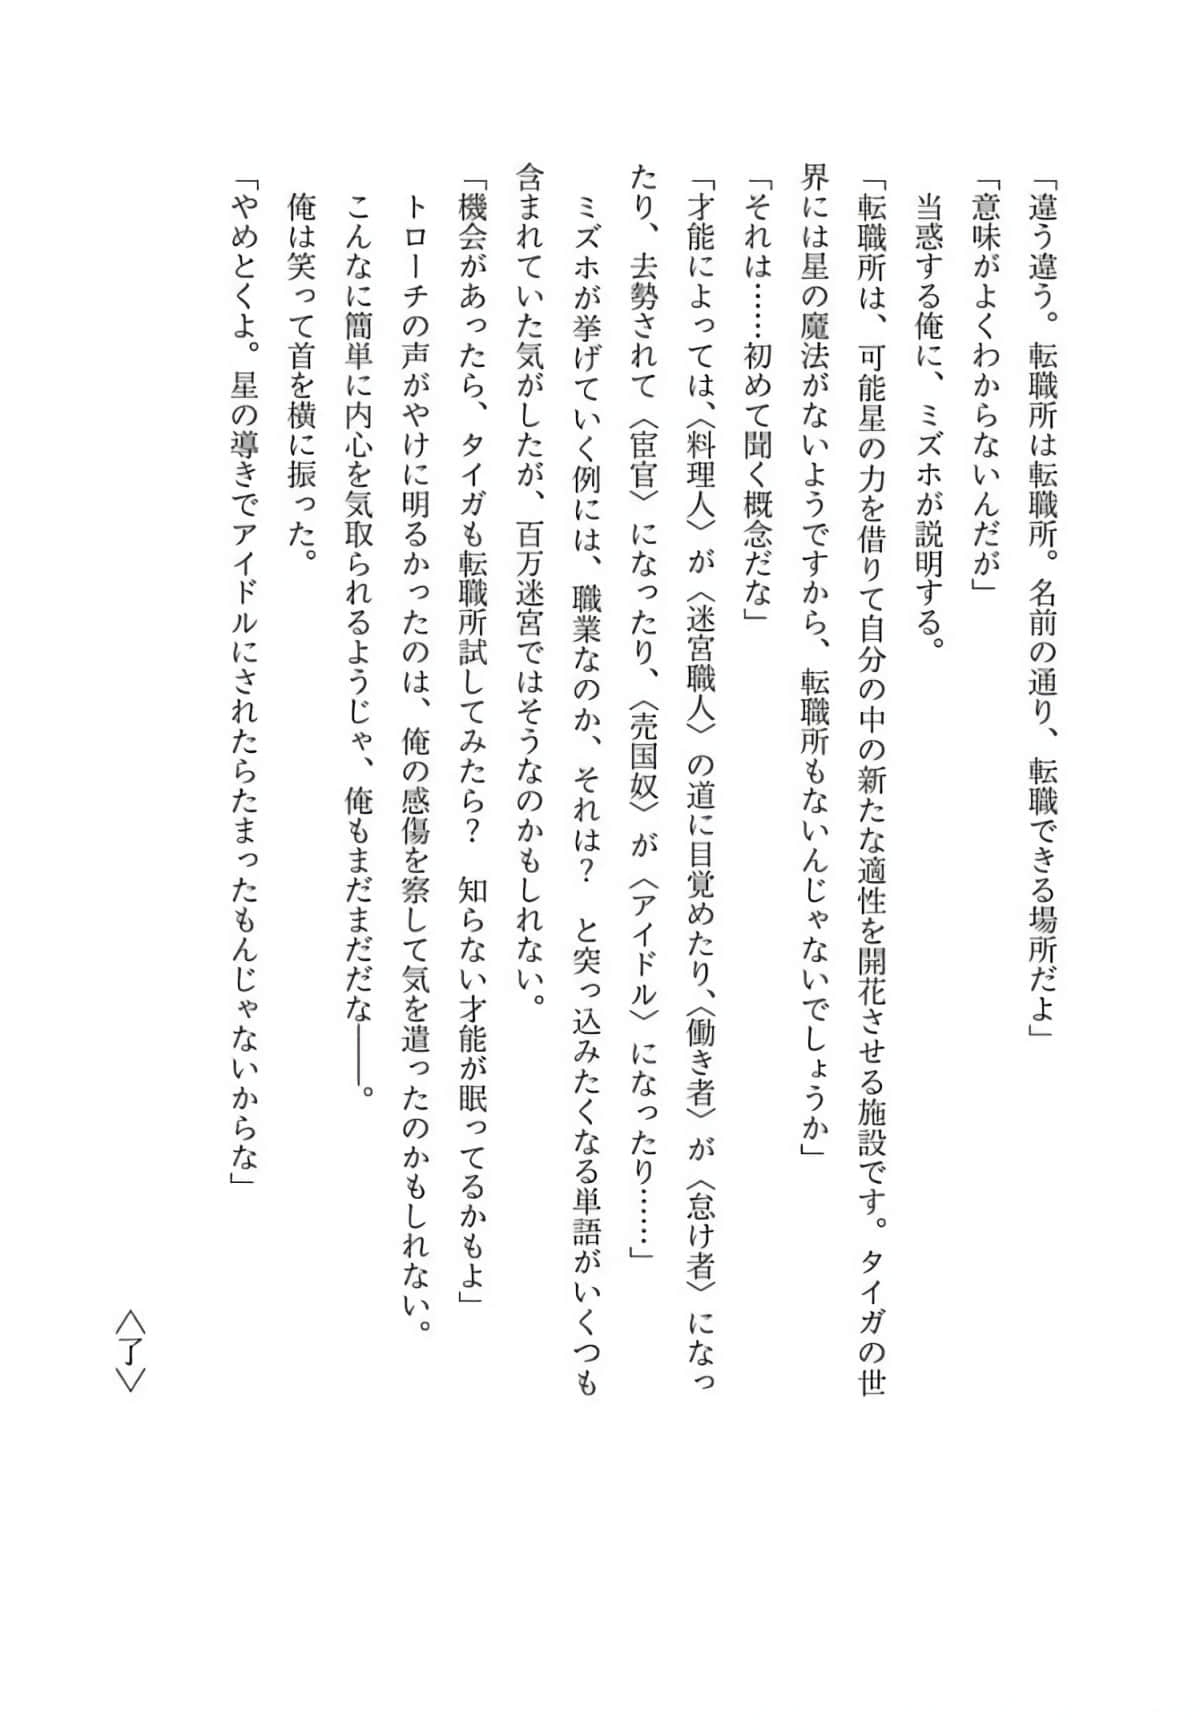 「違う違う。転職所は転職所。名前の通り、転職できる場所だよ」
「意味がよくわからないんだが」
　当惑する俺に、ミズホが説明する。
「転職所は、可能星の力を借りて自分の中の新たな適性を開花させる施設です。タイガの世
界には星の魔法がないようですから、転職所もないんじゃないでしょうか」
「それは……初めて聞く概念だな」
「才能によっては、〈料理人〉が〈迷宮職人〉の道に目覚めたり、〈働き者〉が〈怠け者〉になっ
たり、去勢されて〈宦官〉になったり、〈売国奴〉が〈アイドル〉になったり……」
　ミズホが挙げていく例には、職業なのか、それは？　と突っ込みたくなる単語がいくつも
含まれていた気がしたが、百万迷宮ではそうなのかもしれない。
「機会があったら、タイガも転職所試してみたら？　知らない才能が眠ってるかもよ」
　トローチの声がやけに明るかったのは、俺の感傷を察して気を遣ったのかもしれない。
　こんなに簡単に内心を気取られるようじゃ、俺もまだまだだな――。
　俺は笑って首を横に振った。
「やめとくよ。星の導きでアイドルにされたらたまったもんじゃないからな」
＜了＞